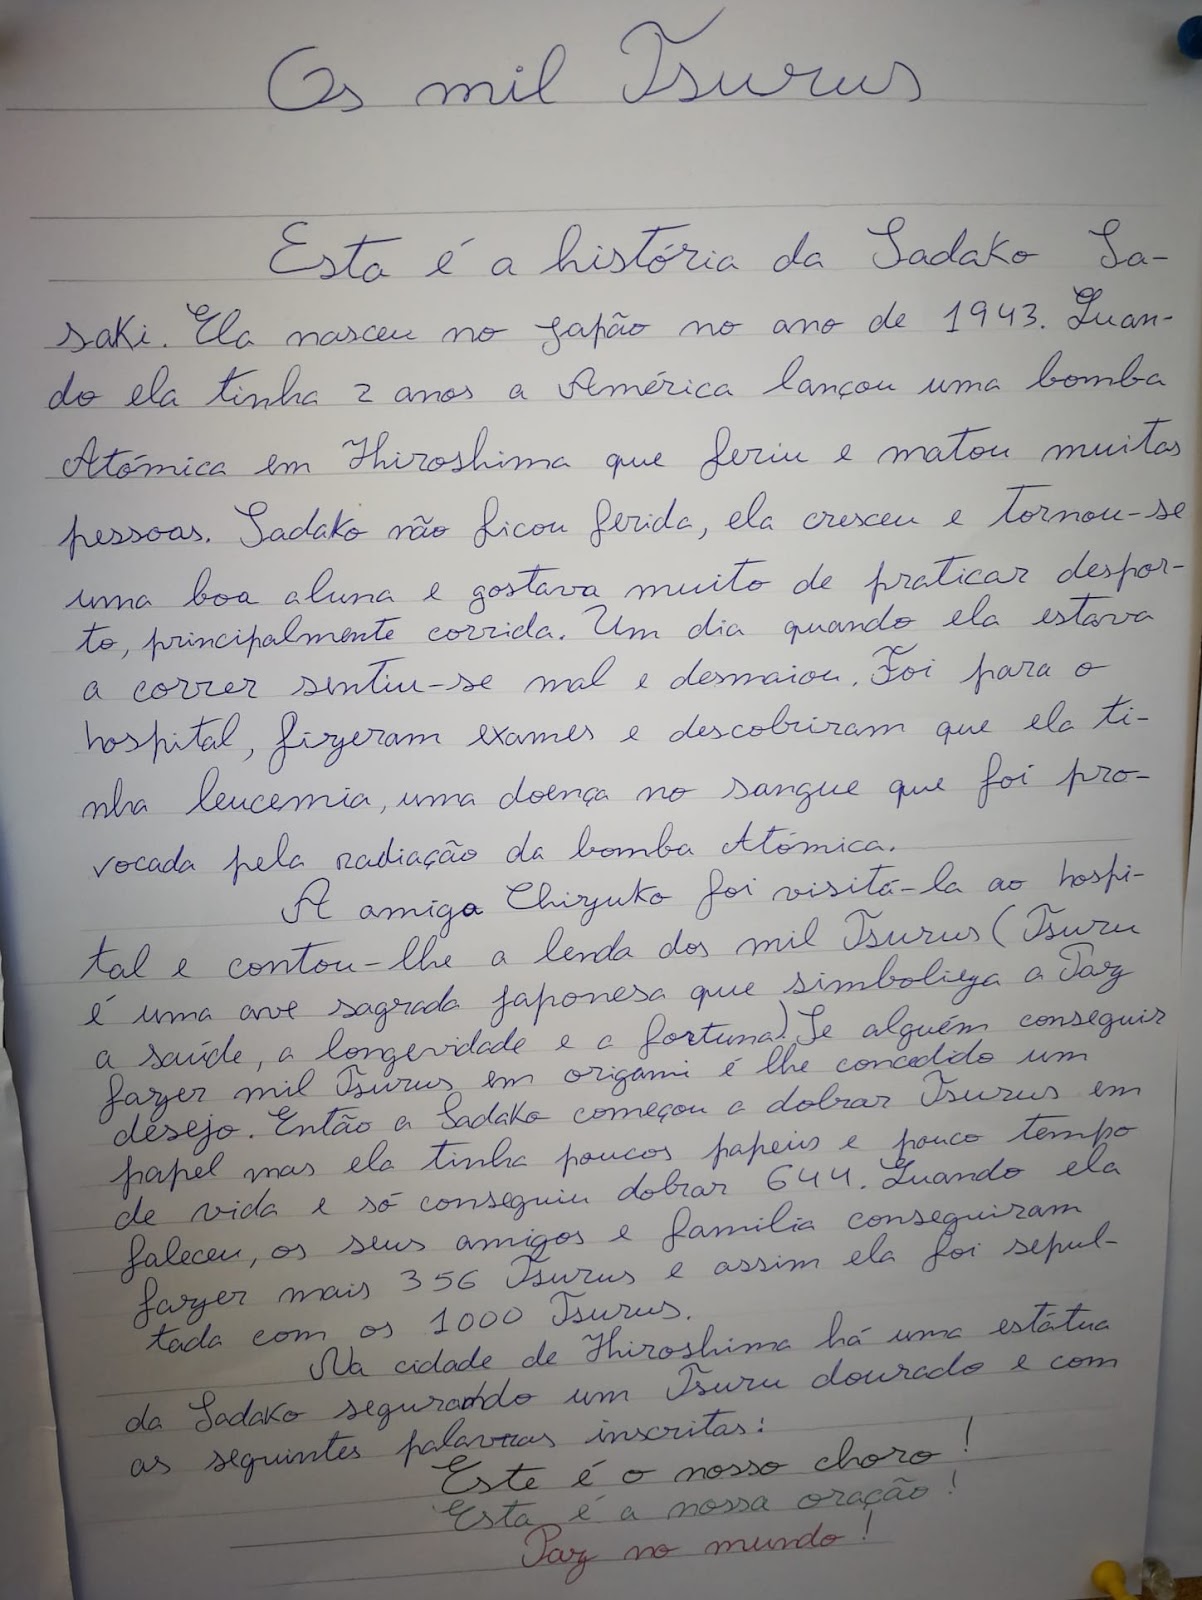 Os mil Tsurus
Esta é a história da Sadako Sa-
saki. Ela nasceu no Japão no ano de 1943. Quan-
do ela tinha 2 anos a América lançou uma bomba
Atómica em Hiroshima que feriu e matou muitas
pessoas. Sadako não ficou ferida, ela cresceu e tornou-se
uma boa aluna e gostava muito de praticar despor-
to, principalmente corrida. Um dia quando ela estava
a correr sentiu-se mal e desmaiou. Foi para o
hospital, fizeram exames e descobriram que ela ti-
nha leucemia, uma doença no sangue que foi pro-
vocada pela radiação da bomba Atómica.
A amiga Chizuko foi visitá-la ao hospi-
tal e contou-lhe a lenda dos mil Tsurus (Tsuru
é uma ave sagrada japonesa que simboliza a Paz
a saúde, a longevidade e a fortuna). Se alguém conseguir
fazer mil Tsurus em origami é lhe concedido um
desejo. Então a Sadako começou a dobrar Tsurus em
papel mas ela tinha poucos papeis e pouco tempo
de vida e só conseguiu dobrar 644. Quando ela
faleceu, os seus amigos e família conseguiram
fazer mais 356 Tsurus e assim ela foi sepul-
tada com os 1000 Tsurus.
Na cidade de Hiroshima há uma estátua
da Sadako segurando um Tsuru dourado e com
as seguintes palavras inscritas:
Este é o nosso choro!
Esta é a nossa oração!
Paz no mundo!